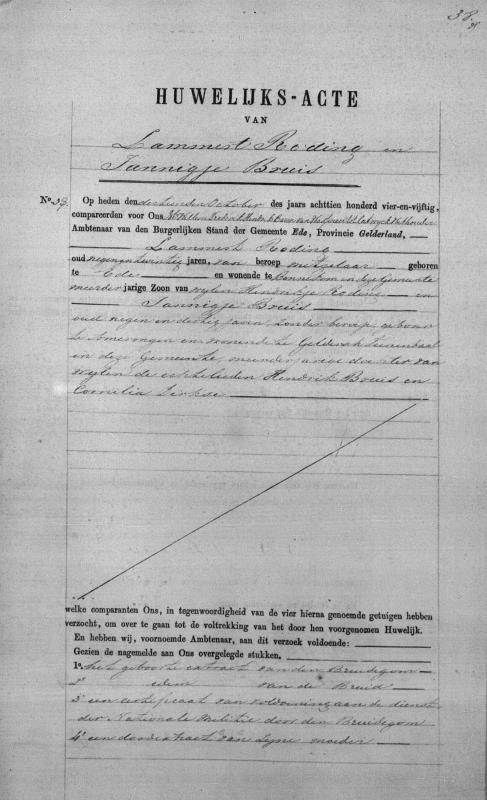 38
HUWELIJKS-ACTE
VAN
Lammert Roding en
Jannigje Bruis
No. 38. Op heden den dertienden October des jaars achttien honderd vier-en-vijftig,
compareerden voor Ons
Ambtenaar van den Burgerlijken Stand der Gemeente Ede, Provincie Gelderland,
Lammert Roding
oud negen en twintig jaren, van beroep metselaar geboren
te Ede en wonende te Bennekom in deze Gemeente
meerder jarige Zoon van wylen Hendrikje Roding en
Jannigje Bruis
oud negen en dertig jaren, zonder beroep, geboren
te Amerongen en wonende te Geldersch Veenendaal
in deze Gemeente, meerderjarige dochter van
wylen de echtelieden Hendrik Bruis en
Cornelia Dirkse
welke comparanten Ons, in tegenwoordigheid van de vier hierna genoemde getuigen hebben
verzocht, om over te gaan tot de voltrekking van het door hen voorgenomen Huwelijk.
En hebben wij, voornoemde Ambtenaar, aan dit verzoek voldoende:
Gezien de nagemelde aan Ons overgelegde stukken,
1o. het geboorte extract van den Bruidegom
2o idem van de Bruid
3o een certificaat van voldoening aan de dienst
der Nationale Militie door den Bruidegom
4o een doodextract van zyne moeder